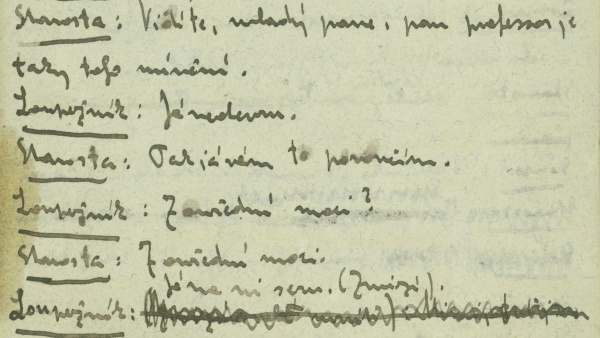 Starosta: Vidíte, mladý pane, pan professor je
taky toho mínění.
Loupežník: Já nedovom.
Starosta: Tak já vám to poroučím.
Loupežník: Z ouřední moci?
Starosta: Z ouřední moci.
Já na ni seru. (Zmizí).
Loupežník: